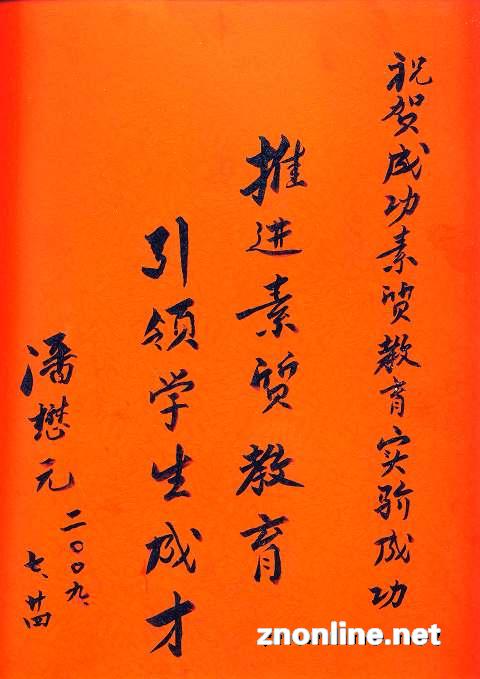 祝贺成功素质教育实验成功
推进素质教育
引领学生成才
潘懋元
二〇〇九、
七、廿四
znonline.net